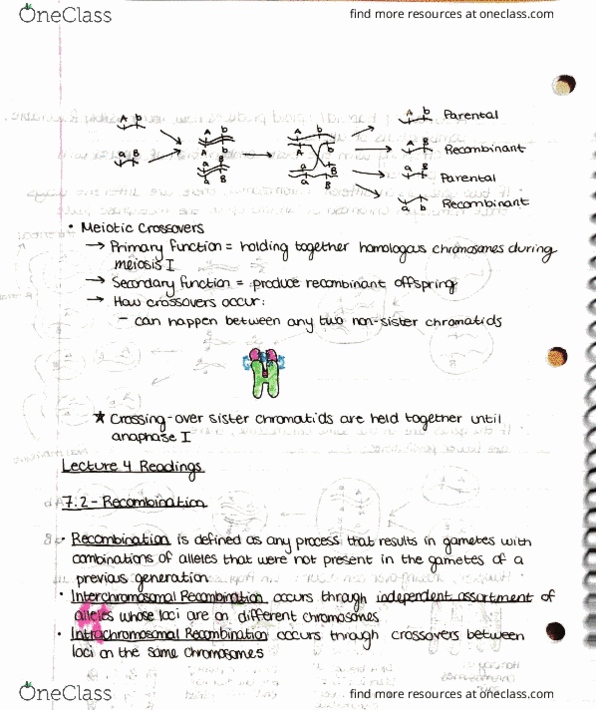 OneClass
find more resources at oneclass.com
A b
a B
A b
A b
a B
a B
A b
A b
a B
a B
A b Parental
A B Recombinant
a B Parental
a b Recombinant
• Meiotic Crossovers
→ Primary function = holding together homologous chromosomes during
meiosis I
→ Secondary function = produce recombinant offspring
→ How crossovers occur:
- can happen between any two non-sister chromatids
★ Crossing-over sister chromatids are held together until
anaphase I
Lecture 4 Readings
7.2 - Recombination
• Recombination is defined as any process that results in gametes with
combinations of alleles that were not present in the gametes of a
previous generation
• Interchromosomal Recombination occurs through independent assortment of
alleles whose loci are on different chromosomes
• Intrachromosomal Recombination occurs through crossovers between
loci on the same chromosomes
OneClass
find more resources at oneclass.com